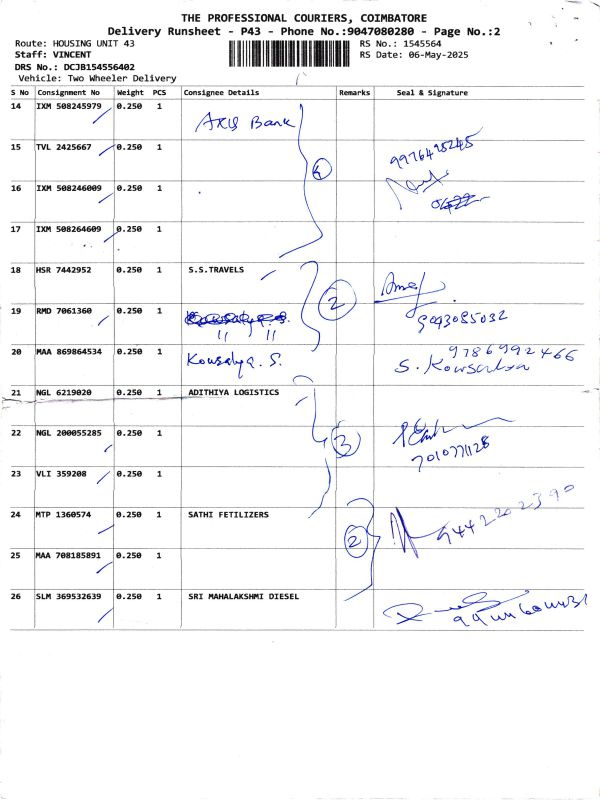 THE PROFESSIONAL COURIERS, COIMBATORE
Delivery Runsheet - P43 - Phone No.:9047080280 - Page No.:2
Route: HOUSING UNIT 43
RS No.: 1545564
Staff: VINCENT
RS Date: 06-May-2025
DRS No.: DCJB154556402
Vehicle: Two Wheeler Delivery
S No Consignment No Weight PCS Consignee Details Remarks Seal & Signature
14 IXM 508245979 0.250 1 AXIS Bank
15 TVL 2425667 0.250 1
16 IXM 508246009 0.250 1
17 IXM 508264609 0.250 1
18 HSR 7442952 0.250 1 S.S.TRAVELS
2
19 RMD 7061360 0.250 1 9093085032
20 MAA 869864534 0.250 1 Kousalya. S. 9786992466
S. Kousalya
21 NGL 6219020 0.250 1 ADITHIYA LOGISTICS
22 NGL 200055285 0.250 1
3
23 VLI 359208 0.250 1
24 MTP 1360574 0.250 1 SATHI FETILIZERS 9442202390
2
25 MAA 708185891 0.250 1
26 SLM 369532639 0.250 1 SRI MAHALAKSHMI DIESEL